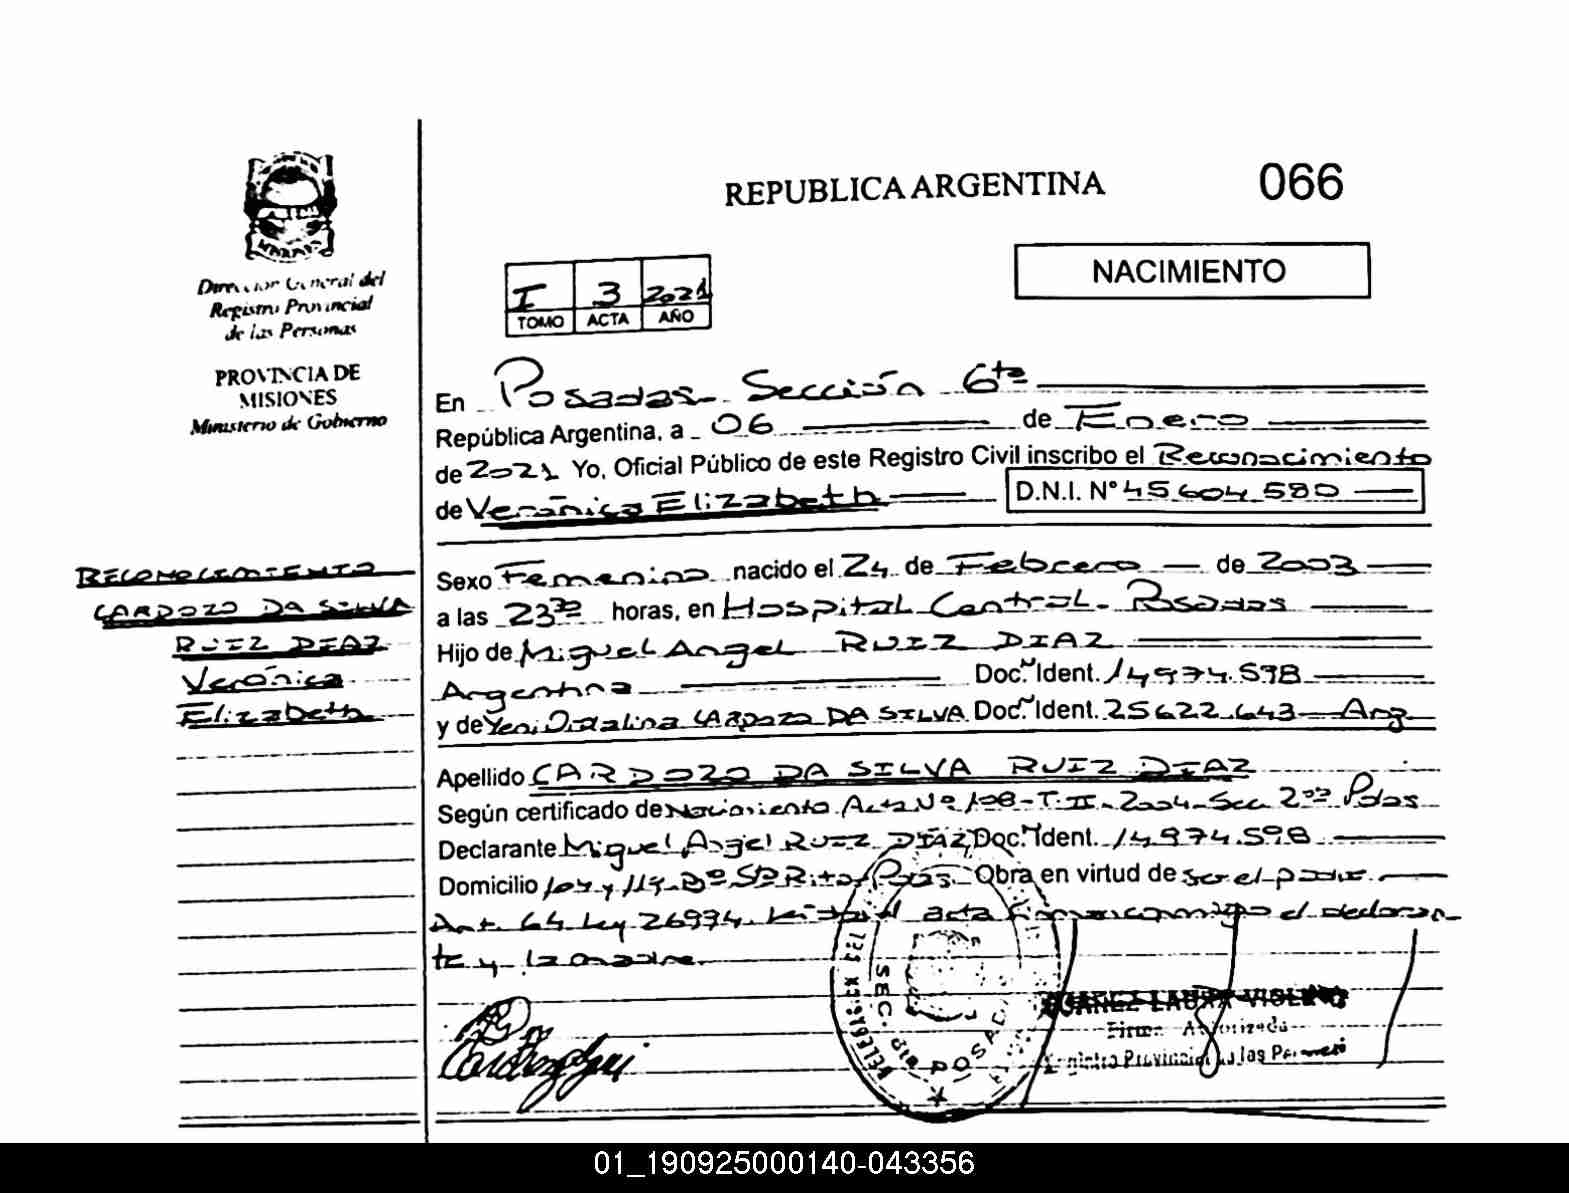 REPUBLICA ARGENTINA
066
NACIMIENTO
Dirección General del
Registro Provincial
de las Personas
PROVINCIA DE
MISIONES
Ministerio de Gobierno
I 3 2021
TOMO ACTA AÑO
En Posadas Sección 6ta
República Argentina, a 06 de Enero
de 2021 Yo, Oficial Público de este Registro Civil inscribo el Reconocimiento
de Verónica Elizabeth D.N.I. N° 45.604.580
RECONOCIMIENTO
CARDOZO DA SILVA
RUIZ DIAZ
Verónica
Elizabeth
Sexo Femenino nacido el 24 de Febrero de 2003
a las 23 30 horas, en Hospital Central. Posadas
Hijo de Miguel Angel RUIZ DIAZ
Argentina Doc. Ident. 14.974.598
y de Yeni CARDOZO DA SILVA Doc. Ident. 25622.643 Arg.
Apellido CARDOZO DA SILVA RUIZ DIAZ
Según certificado de Nacimiento Acta Nº 108-T.II-2004-Sec 2da Pdas
Declarante Miguel Angel RUIZ DIAZ Doc. Ident. 14.974.598
Domicilio Bº Sta Rita Pdas. Obra en virtud de ser el padre.
Art. 64 Ley 26994. acta conmigo el declaran-
te y la madre.
SEC. 6ta POSADAS
JUAREZ LAURA VIOLETA
Firma Autorizada
Registro Provincial de las Personas
01_190925000140-043356